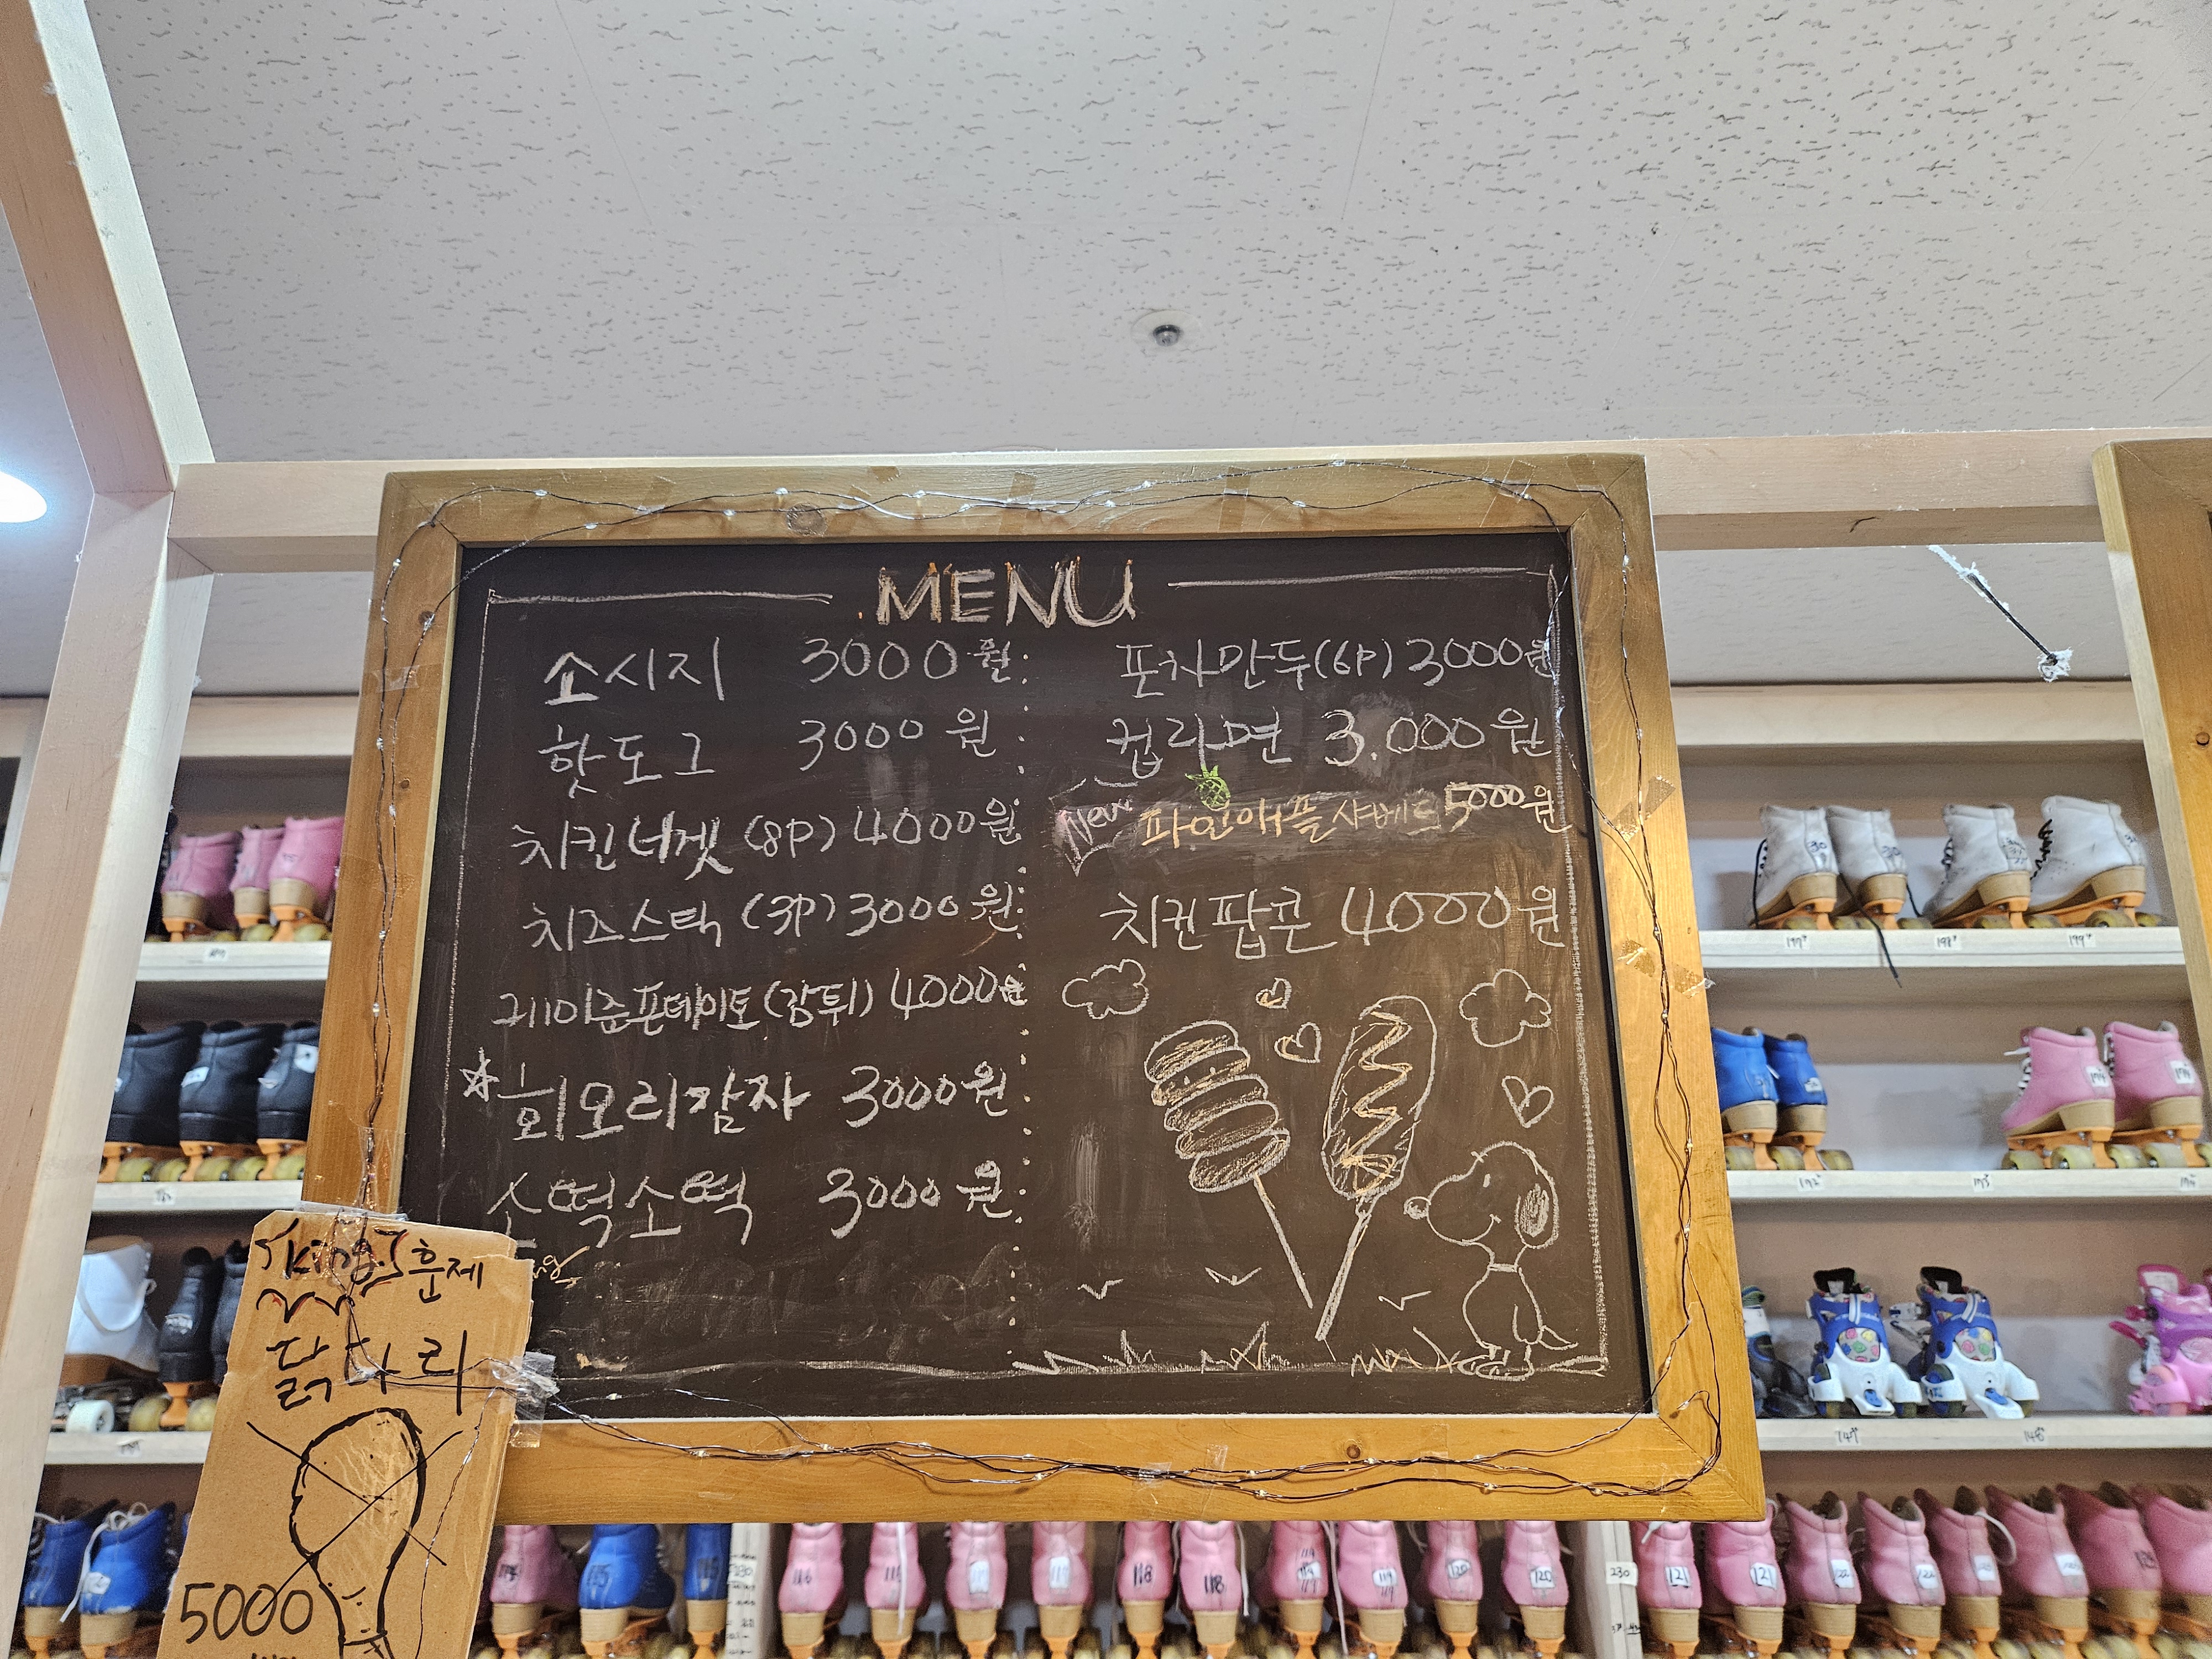 MENU
소시지 3000원
핫도그 3000원
치킨너겟 (8P) 4000원
치즈스틱 (3P) 3000원
케이준포테이토 (감튀) 4000원
회오리감자 3000원
소떡소떡 3000원
포차만두(6P) 3000원
컵라면 3.000원
New 파인애플샤베트 5000원
치킨팝콘 4000원
king 훈제
닭다리
5000
197
198
199
230
116
117
118
118
119
119
120
120
230
121
121
122